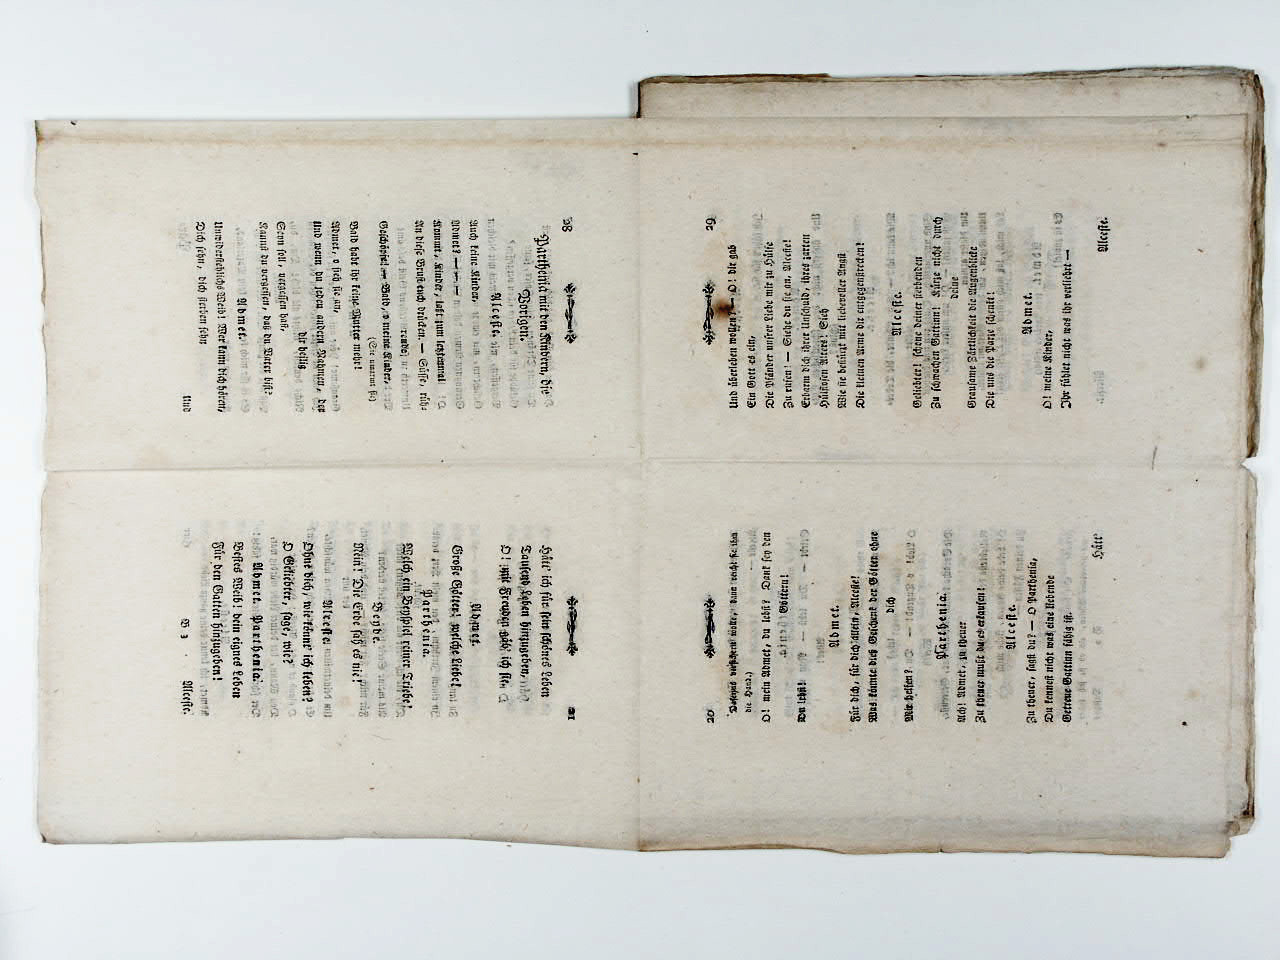 20
die Hand.)
O! mein Admet, du lebst? Dank sey den
Göttern!
Du lebst!
Admet.
Für dich, für dich allein, Alceste!
Was könnte dieß Geschenk der Götter ohne
dich
Mir helfen?
Parthenia.
Ach! Admet, zu theuer
Zu theuer mußt du es erkaufen!
Alceste.
Zu theuer, sagst du? — O Parthenia,
Du kennest nicht was eine liebende
Getreue Gattin fähig ist.
Hätt'
21
Hätt' ich für sein schönes Leben
Tausend Leben hinzugeben,
O! mit Freuden gäb' ich sie.
Admet.
Große Götter! welche Liebe!
Parthenia.
Welch ein Beyspiel reiner Triebe!
Beyde.
Nein! Die Erde sah es nie!
Alceste.
Ohne dich, wie könnt' ich leben?
O Geliebter, sage, wie?
Admet. Parthenia.
Bestes Weib! dein eignes Leben
Für den Gatten hinzugeben!
B 3
Alceste.
28
Parthenia mit den Kindern, die
Vorigen.
Alceste.
Auch keine Kinder,
Admet? — —
Kommt, Kinder, laßt zum letztenmal
An diese Brust euch drücken. — Süsse, rühr-
Geschöpfe! — Bald, o meine Kinder,
(Sie umarmt sie)
Bald habt ihr keine Mutter mehr!
Admet, o sieh sie an,
Und wenn du jeden andern Nahmen, der
Dir heilig
Seyn soll, vergessen hast,
Kannst du vergessen, daß du Vater bist?
Admet.
Unwiderstehlichs Weib! Wer kann dich hören,
Dich sehn, dich sterben sehn
Und
29
Und überleben wollen? — O! dir gab
Ein Gott es ein,
Die Pfänder unsrer Liebe mir zu Hülfe
Zu rufen! — Siehe du sie an, Alceste!
Erbarm dich ihrer Unschuld, ihres zarten
Hülflosen Alters! Sieh
Wie sie beseufzt mit liebevoller Angst
Die kleinen Arme dir entgegenstrecken!
Alceste.
Geliebter! schone deiner sterbenden
Zu schwachen Gattin! Kürze nicht durch
deine
Grausame Zärtlichkeit die Augenblicke
Die uns die Parze schenkt!
Admet.
O! meine Kinder,
Ihr fühlet nicht was ihr verliehrt —
Alceste.